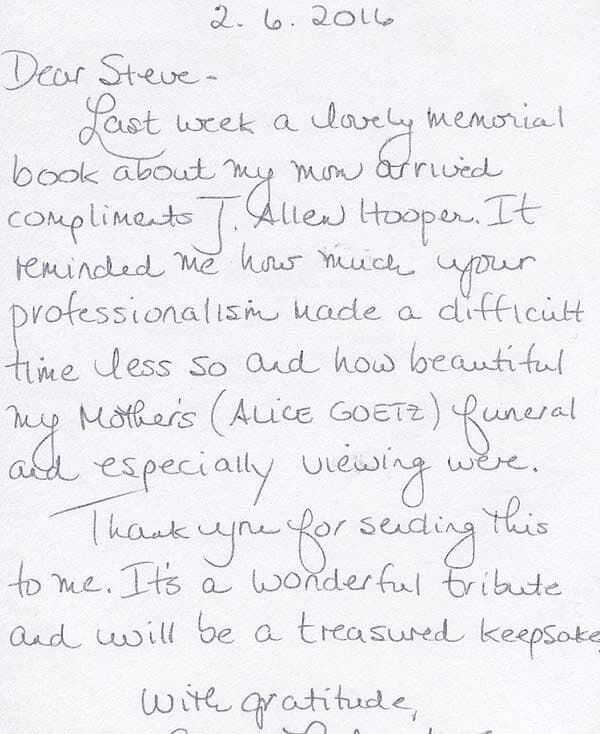 2. 6. 2016
Dear Steve -
Last week a lovely memorial
book about my mom arrived
compliments J. Allen Hooper. It
reminded me how much your
professionalism made a difficult
time less so and how beautiful
my Mother's (ALICE GOETZ) funeral
and especially viewing were.
Thank you for sending this
to me. It's a wonderful tribute
and will be a treasured keepsake
With gratitude,